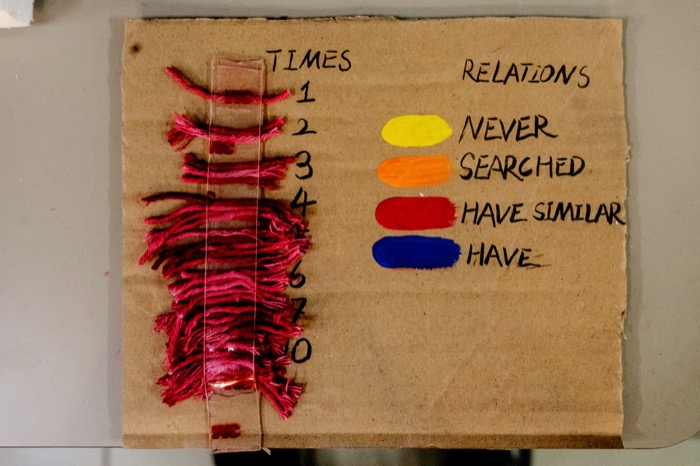 TIMES
1
2
3
4
6
7
10
RELATIONS
NEVER
SEARCHED
HAVE SIMILAR
HAVE